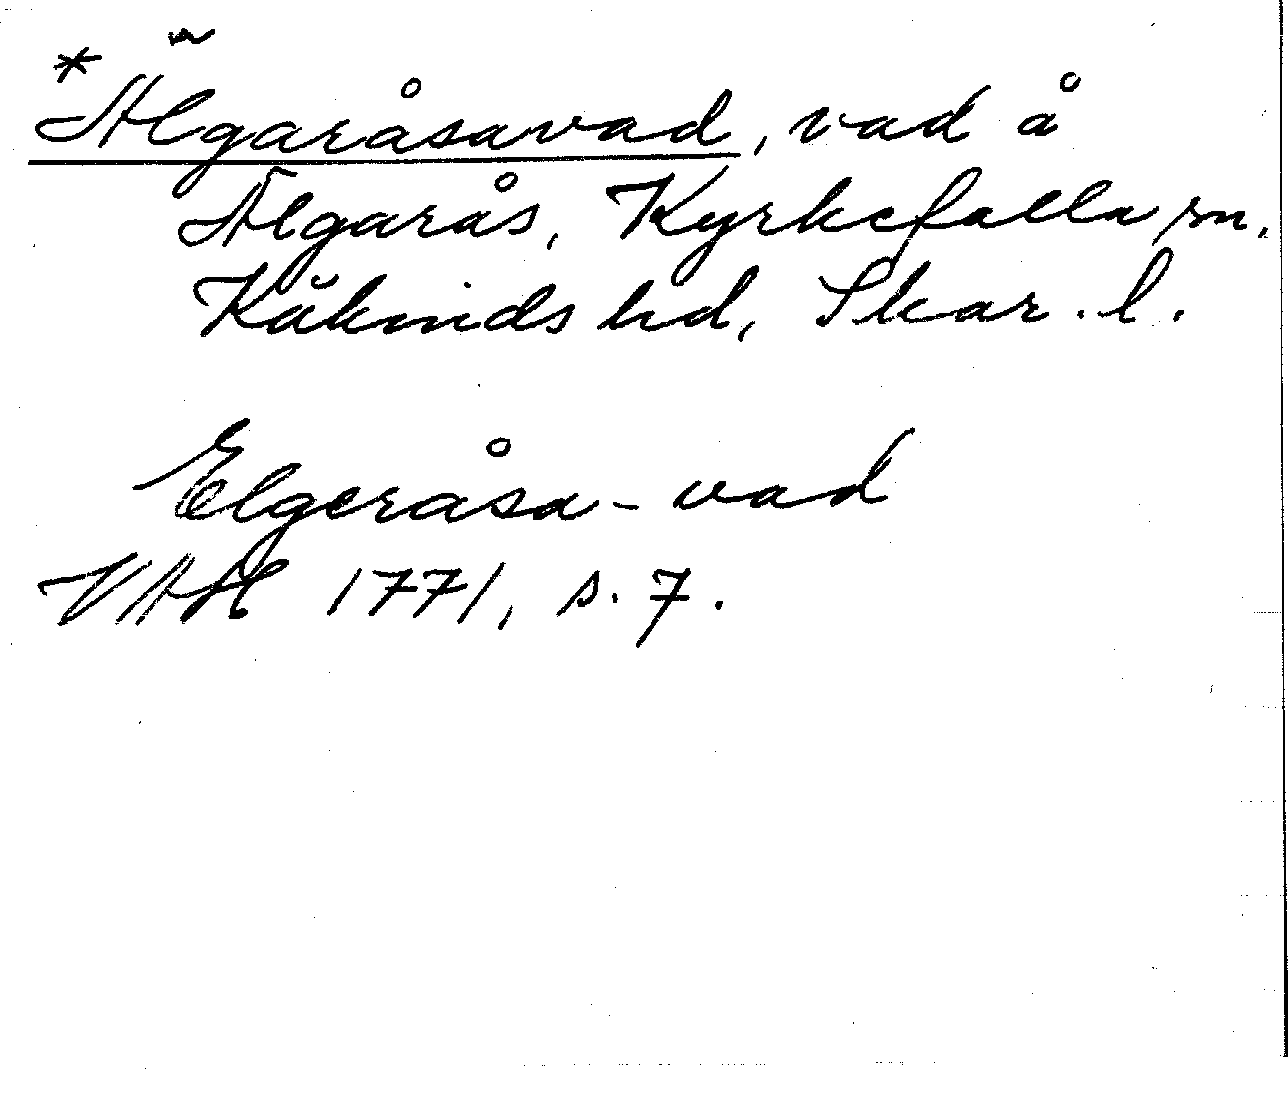 *Älgaråsavad, vad å
Älgarås, Kyrkefalla sn.
Kåkinds hd, Skar. l.
Elgeråsa-vad
VAH 1771, s. 7.